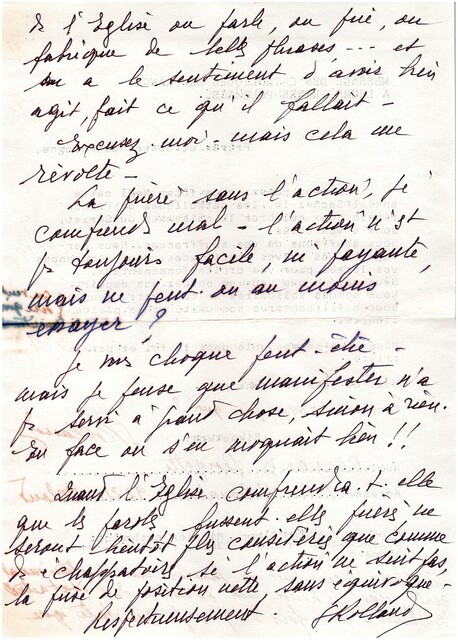 de l'Eglise on parle, on prie, on
fabrique de belles phrases --- et
on a le sentiment d'avoir bien
agit, fait ce qu'il fallait -
Excusez moi - mais cela me
révolte -
La prière sans l'action, je
comprends mal - l'action n'est
ps toujours facile, ni payante,
mais ne peut. on au moins
essayer ?
Je vs choque peut-être -
mais je pense que manifester n'a
ps servi à grand chose, sinon à rien.
En face on s'en moquait bien !!
Quand l'Eglise comprendra.t.elle
que les paroles fussent.elles prières ne
seront bientôt plus considérées que comme
des échappatoires si l'action ne suit pas,
la prise de position nette, sans équivoque -
Respectueusement.